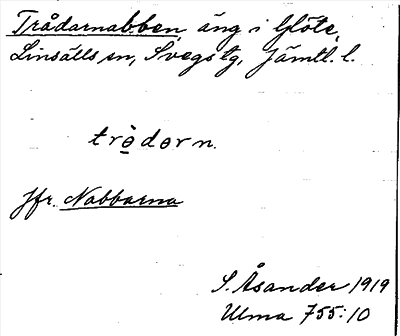 Trådarnabben, äng i Glöte,
Linsälls sn, Svegs tg, Jämtl. l.
trǫ̀dərn.
Jfr. Nabbarna
S. Åsander 1919
Ulma 755:10